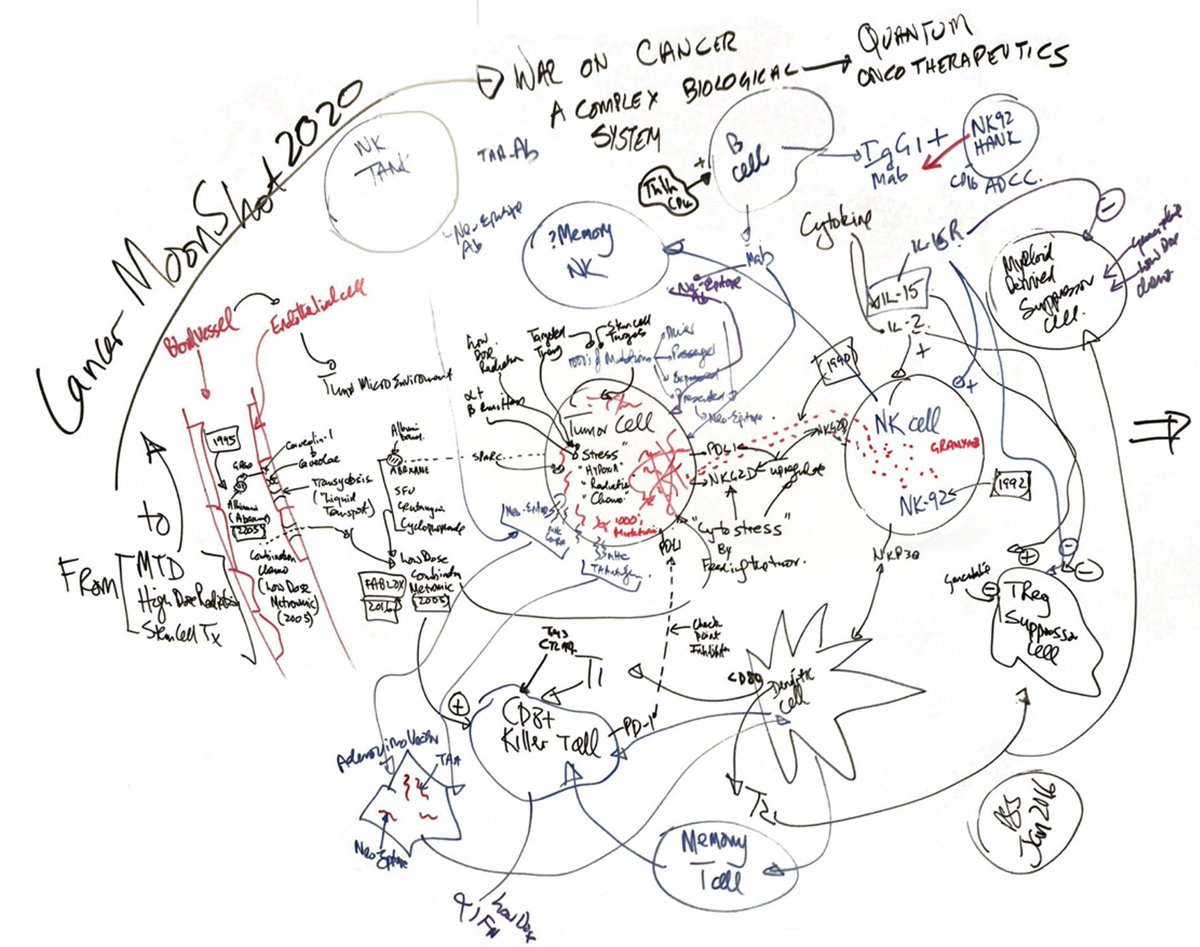 Cancer MoonShot 2020
WAR ON CANCER
A COMPLEX BIOLOGICAL
SYSTEM
QUANTUM
ONCOTHERAPEUTICS
NK
TANK
TAA-Ab
Neo-Epitope
Ab
?Memory
NK
B
Cell
IgG1 +
Mab
NK92
HANK
CD16 ADCC.
Mab
Neo-Epitope
Ab
Cytokine
IL-15R
IL-15
IL-2
+
+
Myeloid
Derived
Suppressor
Cell.
Low Dose
chemo
Blood Vessel
Endothelial cell
Tumor MicroEnvironment
Low
Dose
Radiation
Targeted
Stem Cell
Targets
1000's of Mutations
Driver
Passenger
Expressed
Presented
Neo-Epitope.
1990
Tumor Cell
"Stress"
"Hypoxia"
"Radiation
"Chemo"
1000's
Mutations
PDL1
NKG2D
upregulate
NKG2D
NK cell
GRANYMB
NK-92
1992
NKP30
"Cytostress"
By
PDL1
1995
GP60
Albumin
(Abraxane)
2005
Caveolin-1
Caveolae
Transcytosis
("Liquid
Transport")
Combination
Chemo
(Low Dose
Metronomic
(2005)
ABRAXANE
SPARC
5FU
Cyclophosphamide
Low Dose
Combination
Metronomic
(2005)
2016
Neo-Epitope
MHC
FROM
MTD
High Dose Radiation
Stem Cell Tx
to
Check
Point
Inhibitor
T1
CD8+
Killer T cell
+
PD-1
CD80
Dendritic
Cell
T2
+
-
-
-
-
TReg
Suppressor
Cell
Adenovirus Vector
TAA
Neo-Epitope
Memory
T cell
Low Dox
PSS
Jan 2016